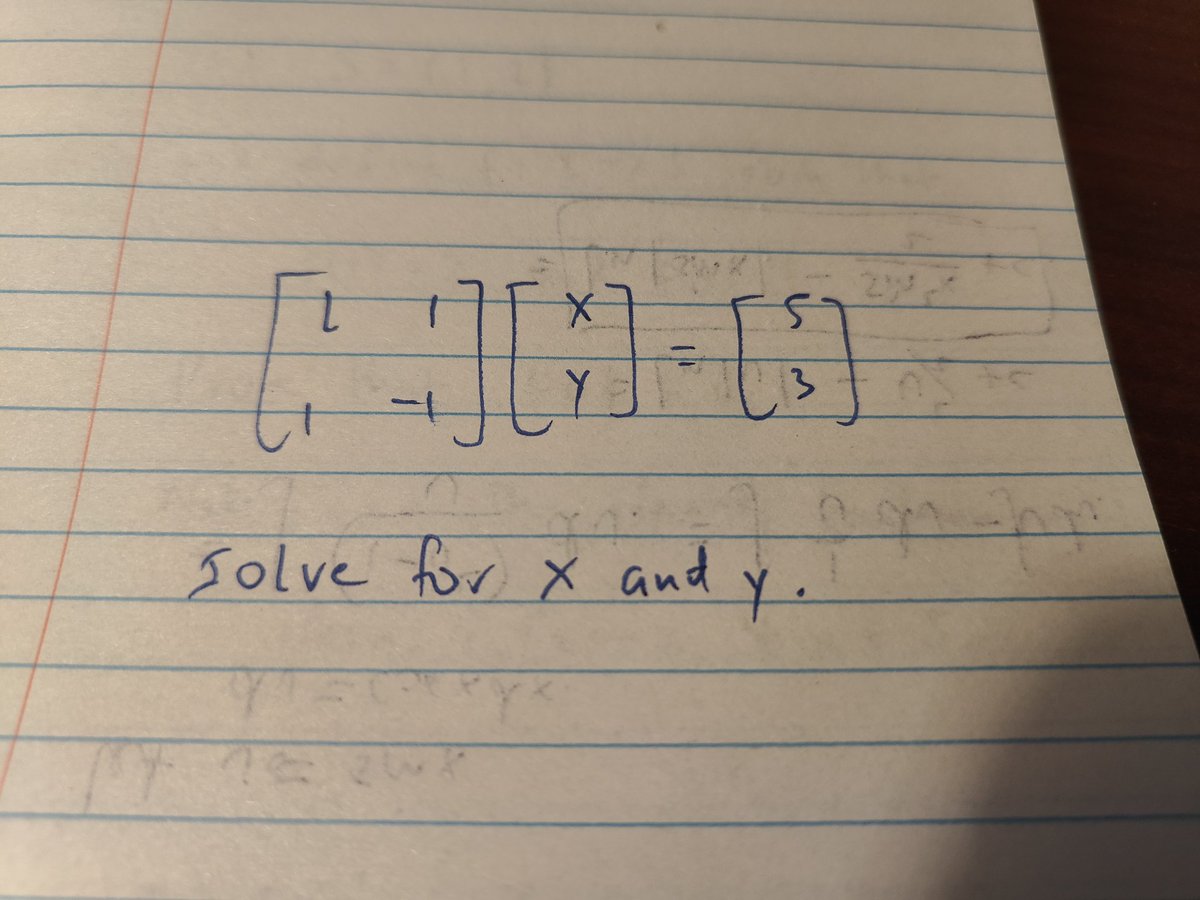 [1 1; 1 -1] [x; y] = [5; 3]
Solve for x and y.